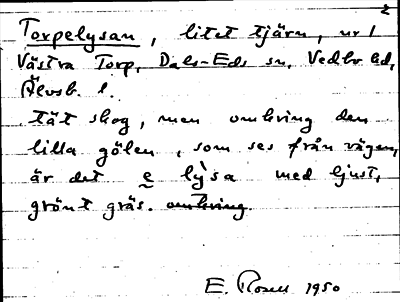 2
Torpelysan, litet tjärn, nr 1
Västra Torp, Dals-Eds sn, Vedbo hd,
Älvsb. l.
tät skog, men omkring den
lilla gölen, som ses från vägen,
är det e lysa med ljust,
grönt gräs. omkring
E. Rosell 1950